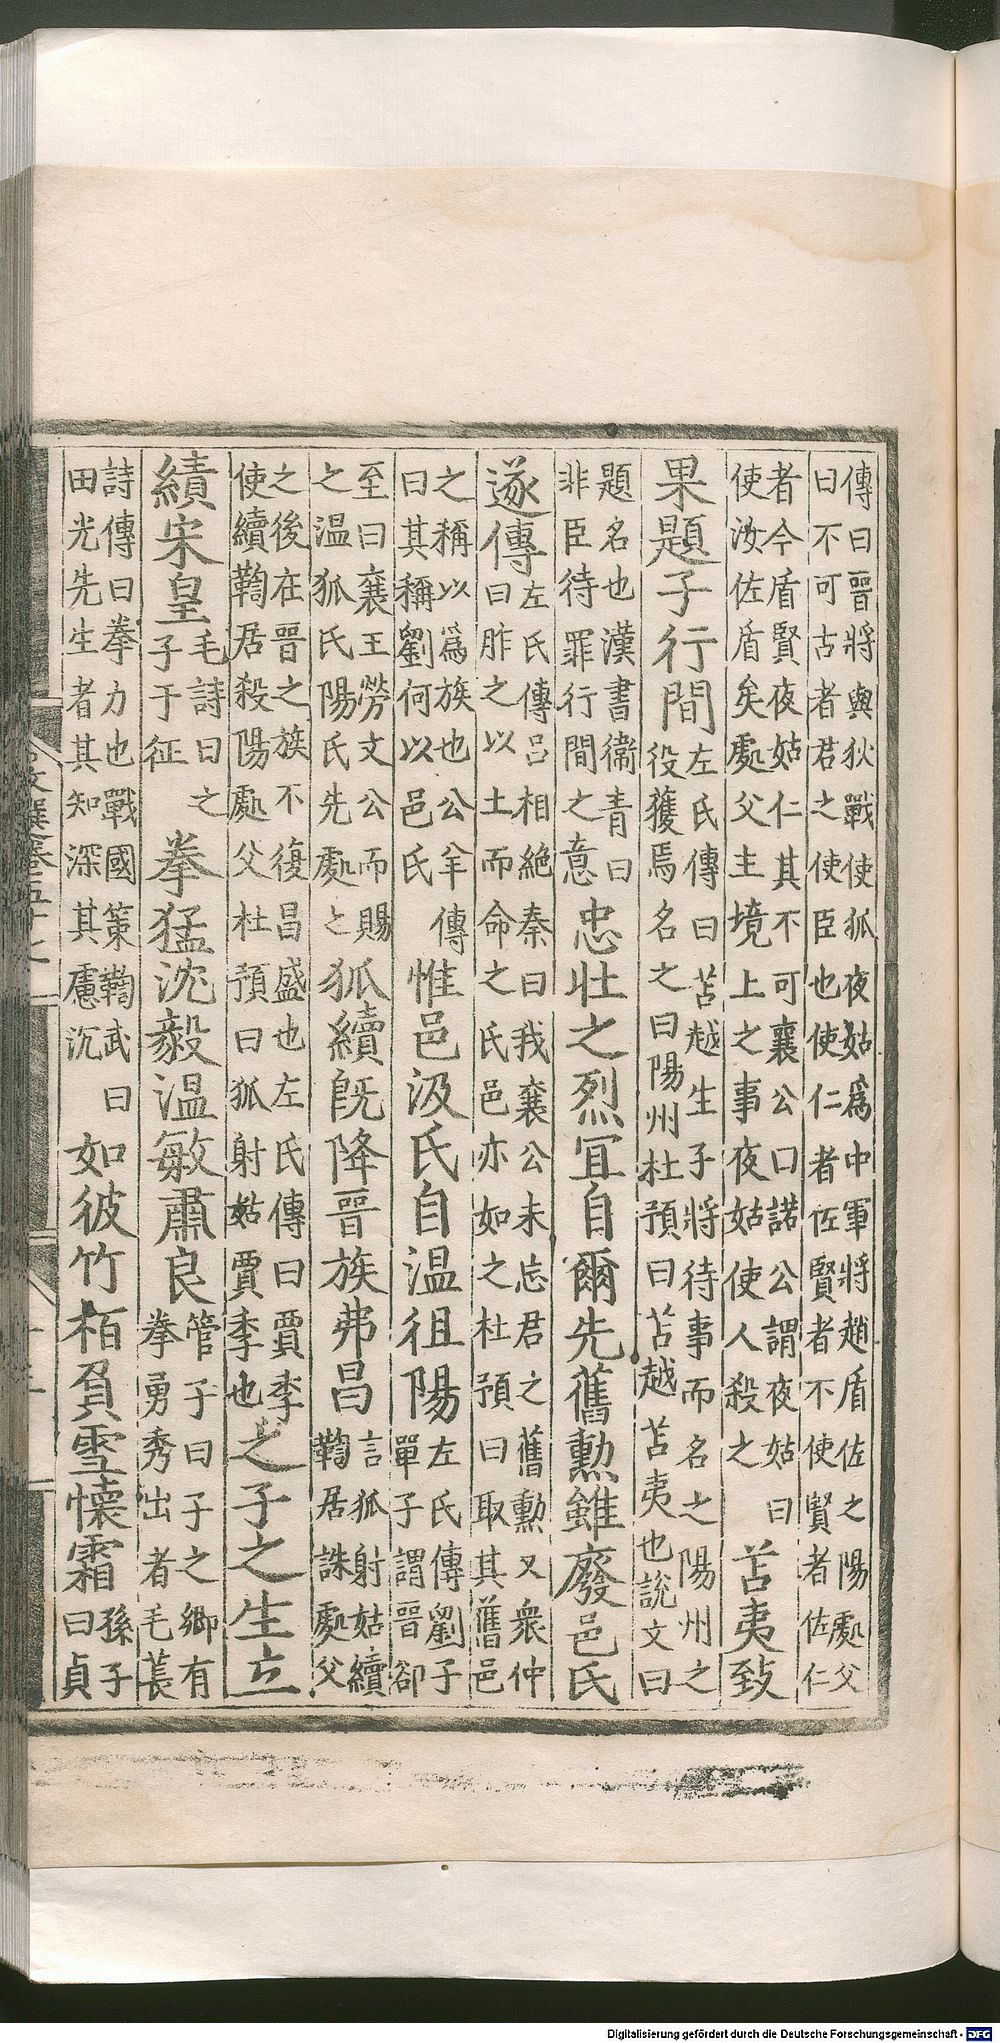 傳曰晉將與狄戰使狐夜姑爲中軍將趙盾佐之陽處父
曰不可古者君之使臣也使仁者佐賢者不使賢者佐仁
者今盾賢夜姑仁其不可襄公曰諾公謂夜姑曰
使汝佐盾矣處父主境上之事夜姑使人殺之
苫夷致
果題子行間
左氏傳曰苫越生子將待事而名之陽州之
役獲焉名之曰陽州杜預曰苫越苫夷也說文曰
題名也漢書衞青曰
非臣待罪行間之意
忠壯之烈宜自爾先舊勳雖廢邑氏
遂傳
左氏傳呂相絶秦曰我襄公未忘君之舊勳又衆仲
曰胙之以土而命之氏邑亦如之杜預曰取其舊邑
之稱以爲族也公羊傳
曰其稱劉何以邑氏
惟邑汲氏自温徂陽
左氏傳劉子
單子謂晉郤
至曰襄王勞文公而賜
之温狐氏陽氏先處之
狐續旣降晉族弗昌
言狐射姑續
鞫居誅處父
之後在晉之族不復昌盛也左氏傳曰賈季
使續鞫居殺陽處父杜預曰狐射姑賈季也
之子之生立
績宋皇
毛詩曰之
子于征
拳猛沈毅温敏肅良
管子曰子之鄉有
拳勇秀出者毛萇
詩傳曰拳力也戰國策鞫武曰
田光先生者其知深其慮沉
如彼竹栢負雪懷霜
孫子
曰貞
Digitalisierung gefördert durch die Deutsche Forschungsgemeinschaft - DFG